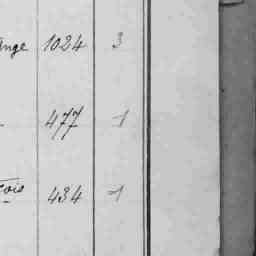 ange 1024 3
477 1
çois 434 1